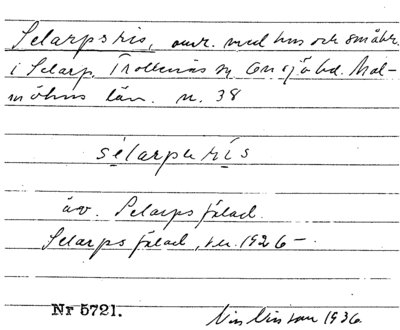 Selarpsris, omr. med hus och småbr.
i Selarp, Trollenäs sn, Onsjö hd. Mal-
möhus län. n. 38
selarpsrís
äv. Selarps fälad.
Selarps fälad, ver. 1926–
Nr 5721. 1936